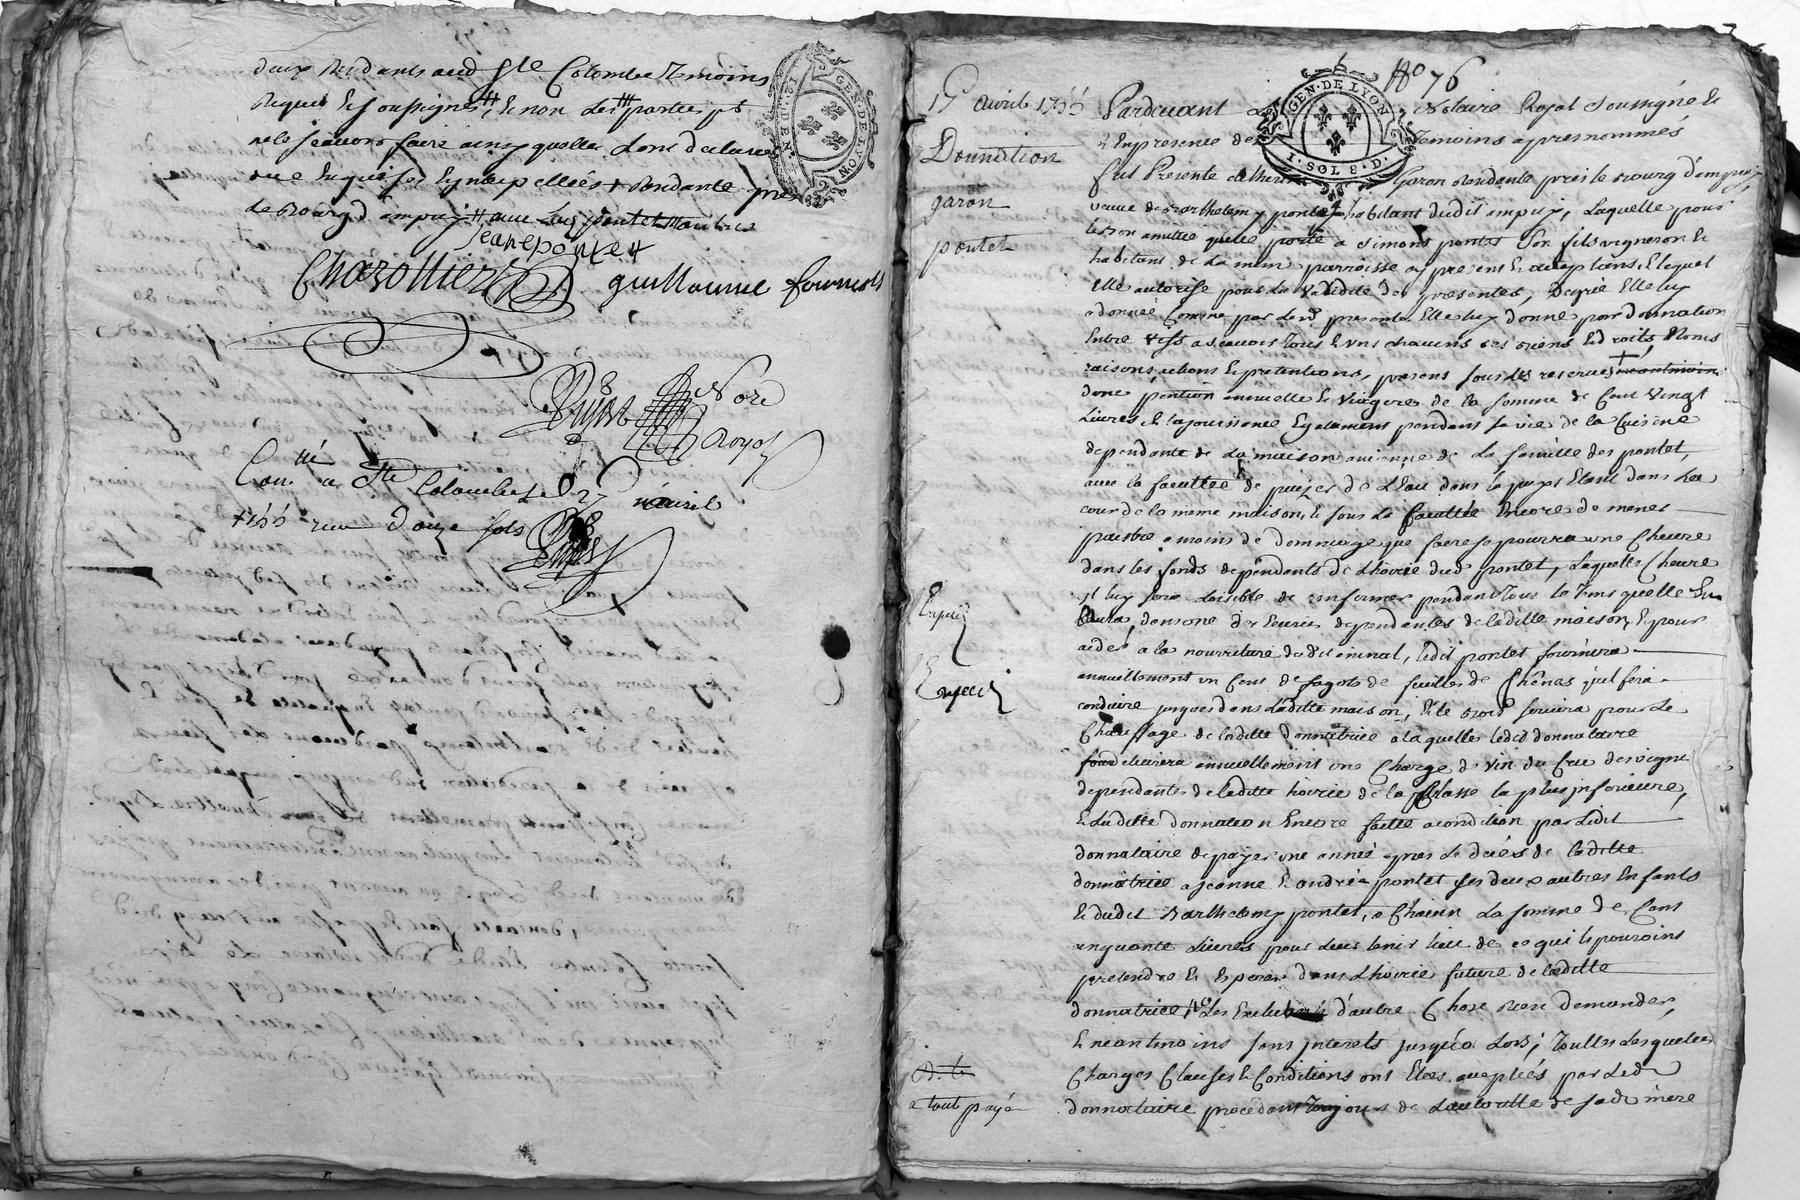 deux Residants aud Ste Colombe Temoins
Requis & soussignés & non les parties pt
ne le scavoir faire ainsy quelles l'ont declaré
de Enquises & interpellées + Residante près
le Bourg d'ampuy avec Luy pontet
Jean ponte
Charollier guillaume fournel
Nore
Royal
Conlle a Ste Colombe Le 27 avril
1755 reçu douze sols
GEN · DE LYON
No 76
GEN · DE LYON
1 · SOL 8 · D ·
15 avril 1755
Donnation
garon
pontet
Expédié
Expedié
a tout payé
Pardevant Le Notaire Royal soussigné &
& En presence des Temoins apres nommés
fut Presente Garon Residente près le Bourg d'ampuy,
veuve de Barthelemy pontet habitant dudit ampuy, Laquelle pour
la bon amitié quelle porte a simon pontet son fils vigneron &
habitant de La meme parroisse cy present & acceptant, & lequel
elle autorise pour la validité des presentes, De gré Elle luy
a donné comme par Led presentes Elle luy donne par donnation
Entre vifs a scavoir tous & uns chacuns ses Biens & droits, Noms
raisons actions & pretentions, presens sous les reserves
d'une pention annuelle & viagere de la somme de Cent Vingt
Livres, & la jouissance Egalement pendant sa vie de la Cuisine
dependante de La maison ancienne de La famille des pontet,
avec la faculté de puizer de L'Eau dans le puys Etant dans La
cour de la meme maison, & sous La faculté Encore de mener
paistre a moins de dommage que faire se pourra une Chevre
dans les fonds dependants de L'hoirie dud pontet, Laquelle Chevre
il luy sera loisible de renfermer pendant tous le tems quelle En
aura, dans une des Ecuries dependantes de laditte maison, & pour
aider a la nourriture dudit animal, ledit pontet fournira
annuellement un Cent de fagots de feuilles de Chenas qu'il fera
conduire jusques dans Laditte maison, & le Bois servira pour Le
Chauffage de laditte donnatrice a laquelle ledit donnataire
delivrera annuellement une Charge de Vin du Cru des vignes
dependantes de laditte hoirie de la Classe la plus inferieure,
& Laditte donnation Encore faitte a condition par Ledit
donnataire de payer une année apres Le decès de laditte
donnatrice a Jeanne & andrée pontet ses deux autres Enfants
& dudit Barthelemy pontet, a Chacun La somme de Cent
cinquante Livres pour Leur tenir lieu de ce qui & pouroint
pretendre & Esperer dans L'hoirie future de laditte
donnatrice d'autre Chose Rien demander,
& neantmoins sans interets jusqu'a Lors; Touttes Lesquelles
Charges Clauses & Conditions ont Etées acceptées par Led
donnataire procedant toujours de L'authorité de sad mere